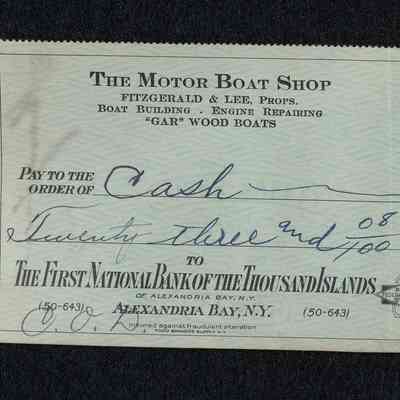 THE MOTOR BOAT SHOP
FITZGERALD & LEE, PROPS.
BOAT BUILDING - ENGINE REPAIRING
"GAR" WOOD BOATS
PAY TO THE
ORDER OF Cash
Twenty three and 08/100
TO
THE FIRST NATIONAL BANK OF THE THOUSAND ISLANDS
OF ALEXANDRIA BAY, N.Y.
(50-643) ALEXANDRIA BAY, N.Y. (50-643)
C.O.D.
Insured against fraudulent alteration